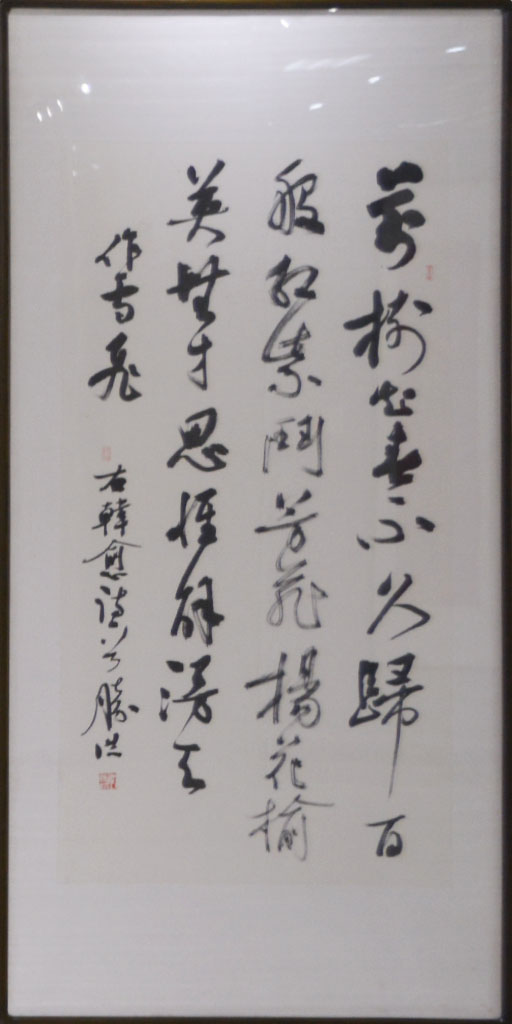 萬樹知春不久歸百
般紅紫鬥芳菲楊花榆
莢無才思惟解漫天
作雪飛 右韓愈詩